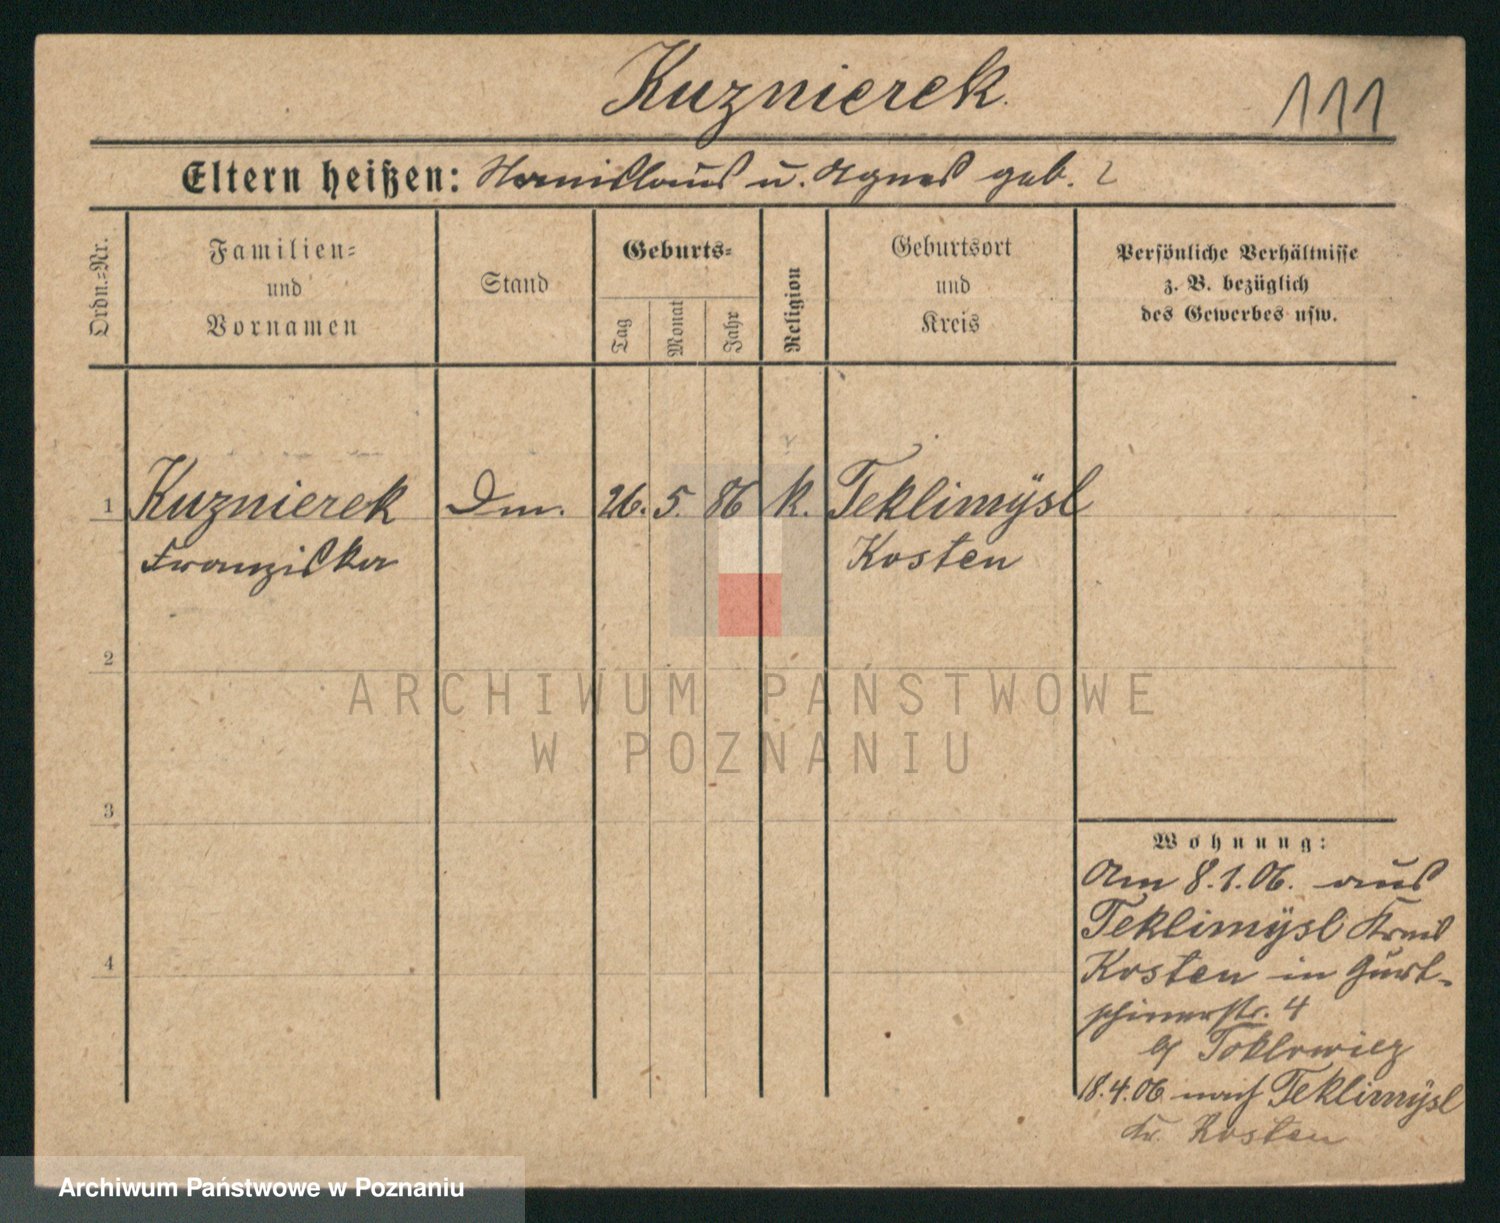 Kuznierek.
111
Eltern heißen: Stanislaus u. Agnes geb. ?
Ordn.=Nr.
Familien=
und
Vornamen
Stand
Geburts=
Tag
Monat
Jahr
Religion
Geburtsort
und
Kreis
Persönliche Verhältnisse
z. B. bezüglich
des Gewerbes usw.
1 Kuznierek Dm. 26. 5. 86 k. Teklimÿsl
Franziska Kosten
2
ARCHIWUM PAŃSTWOWE
W POZNANIU
3
Wohnung:
Am 8.1.06. aus
Teklimÿsl Kreis
4
Kosten in Gurt-
schinerstr. 4
Toklowicz
18.4.06 nach Teklimÿsl
Kr. Kosten
Archiwum Państwowe w Poznaniu